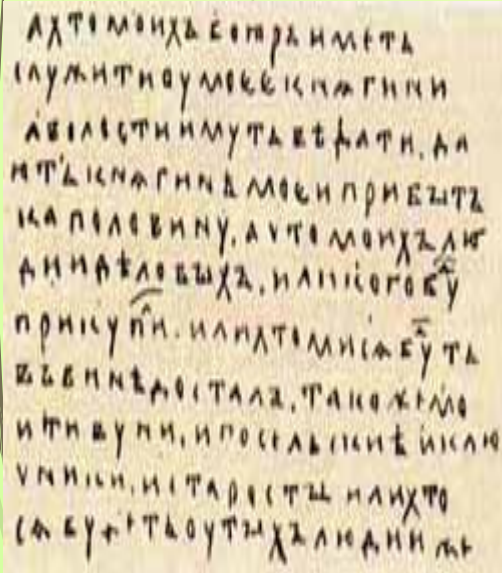 а хто моихъ бояръ иметь
служити у моее княгини
а волости имуть вѣдати, да
ють княгинѣ моеи прибытъ
ка половину, а что моихъ лю
дии дѣловыхъ, или кого буд
прикупил. или хто ми сѧ буд ть
въ винѣ досталъ, тако же мо
и тивуни, и посельскиѣ и клю
чники, и старосты или хто
сѧ будеть оу тыхъ людии же